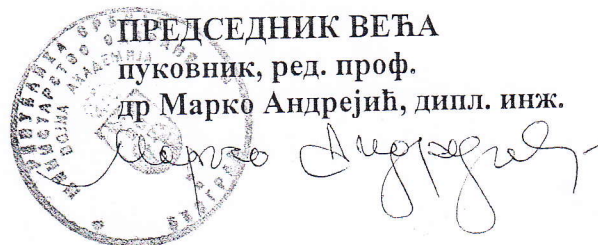 ПРЕДСЕДНИК ВЕЋА
пуковник, ред. проф.
др Марко Андрејић, дипл. инж.
Марко Андрејић